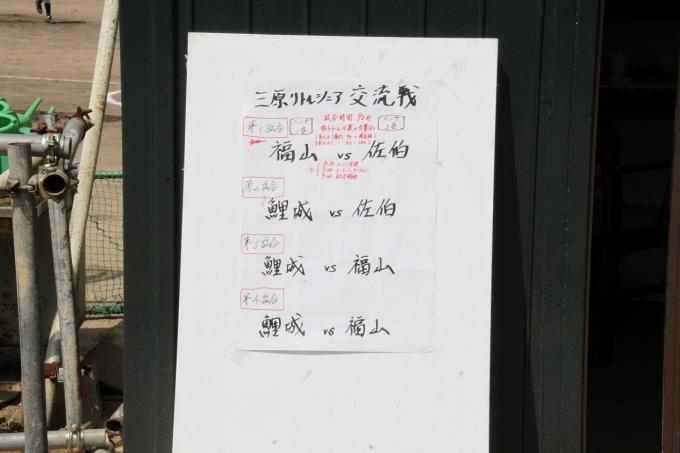 三原リトルシニア 交流戦
第1試合
試合時間 90分
福山 vs 佐伯
第2試合
鯉城 vs 佐伯
第3試合
鯉城 vs 福山
第4試合
鯉城 vs 福山